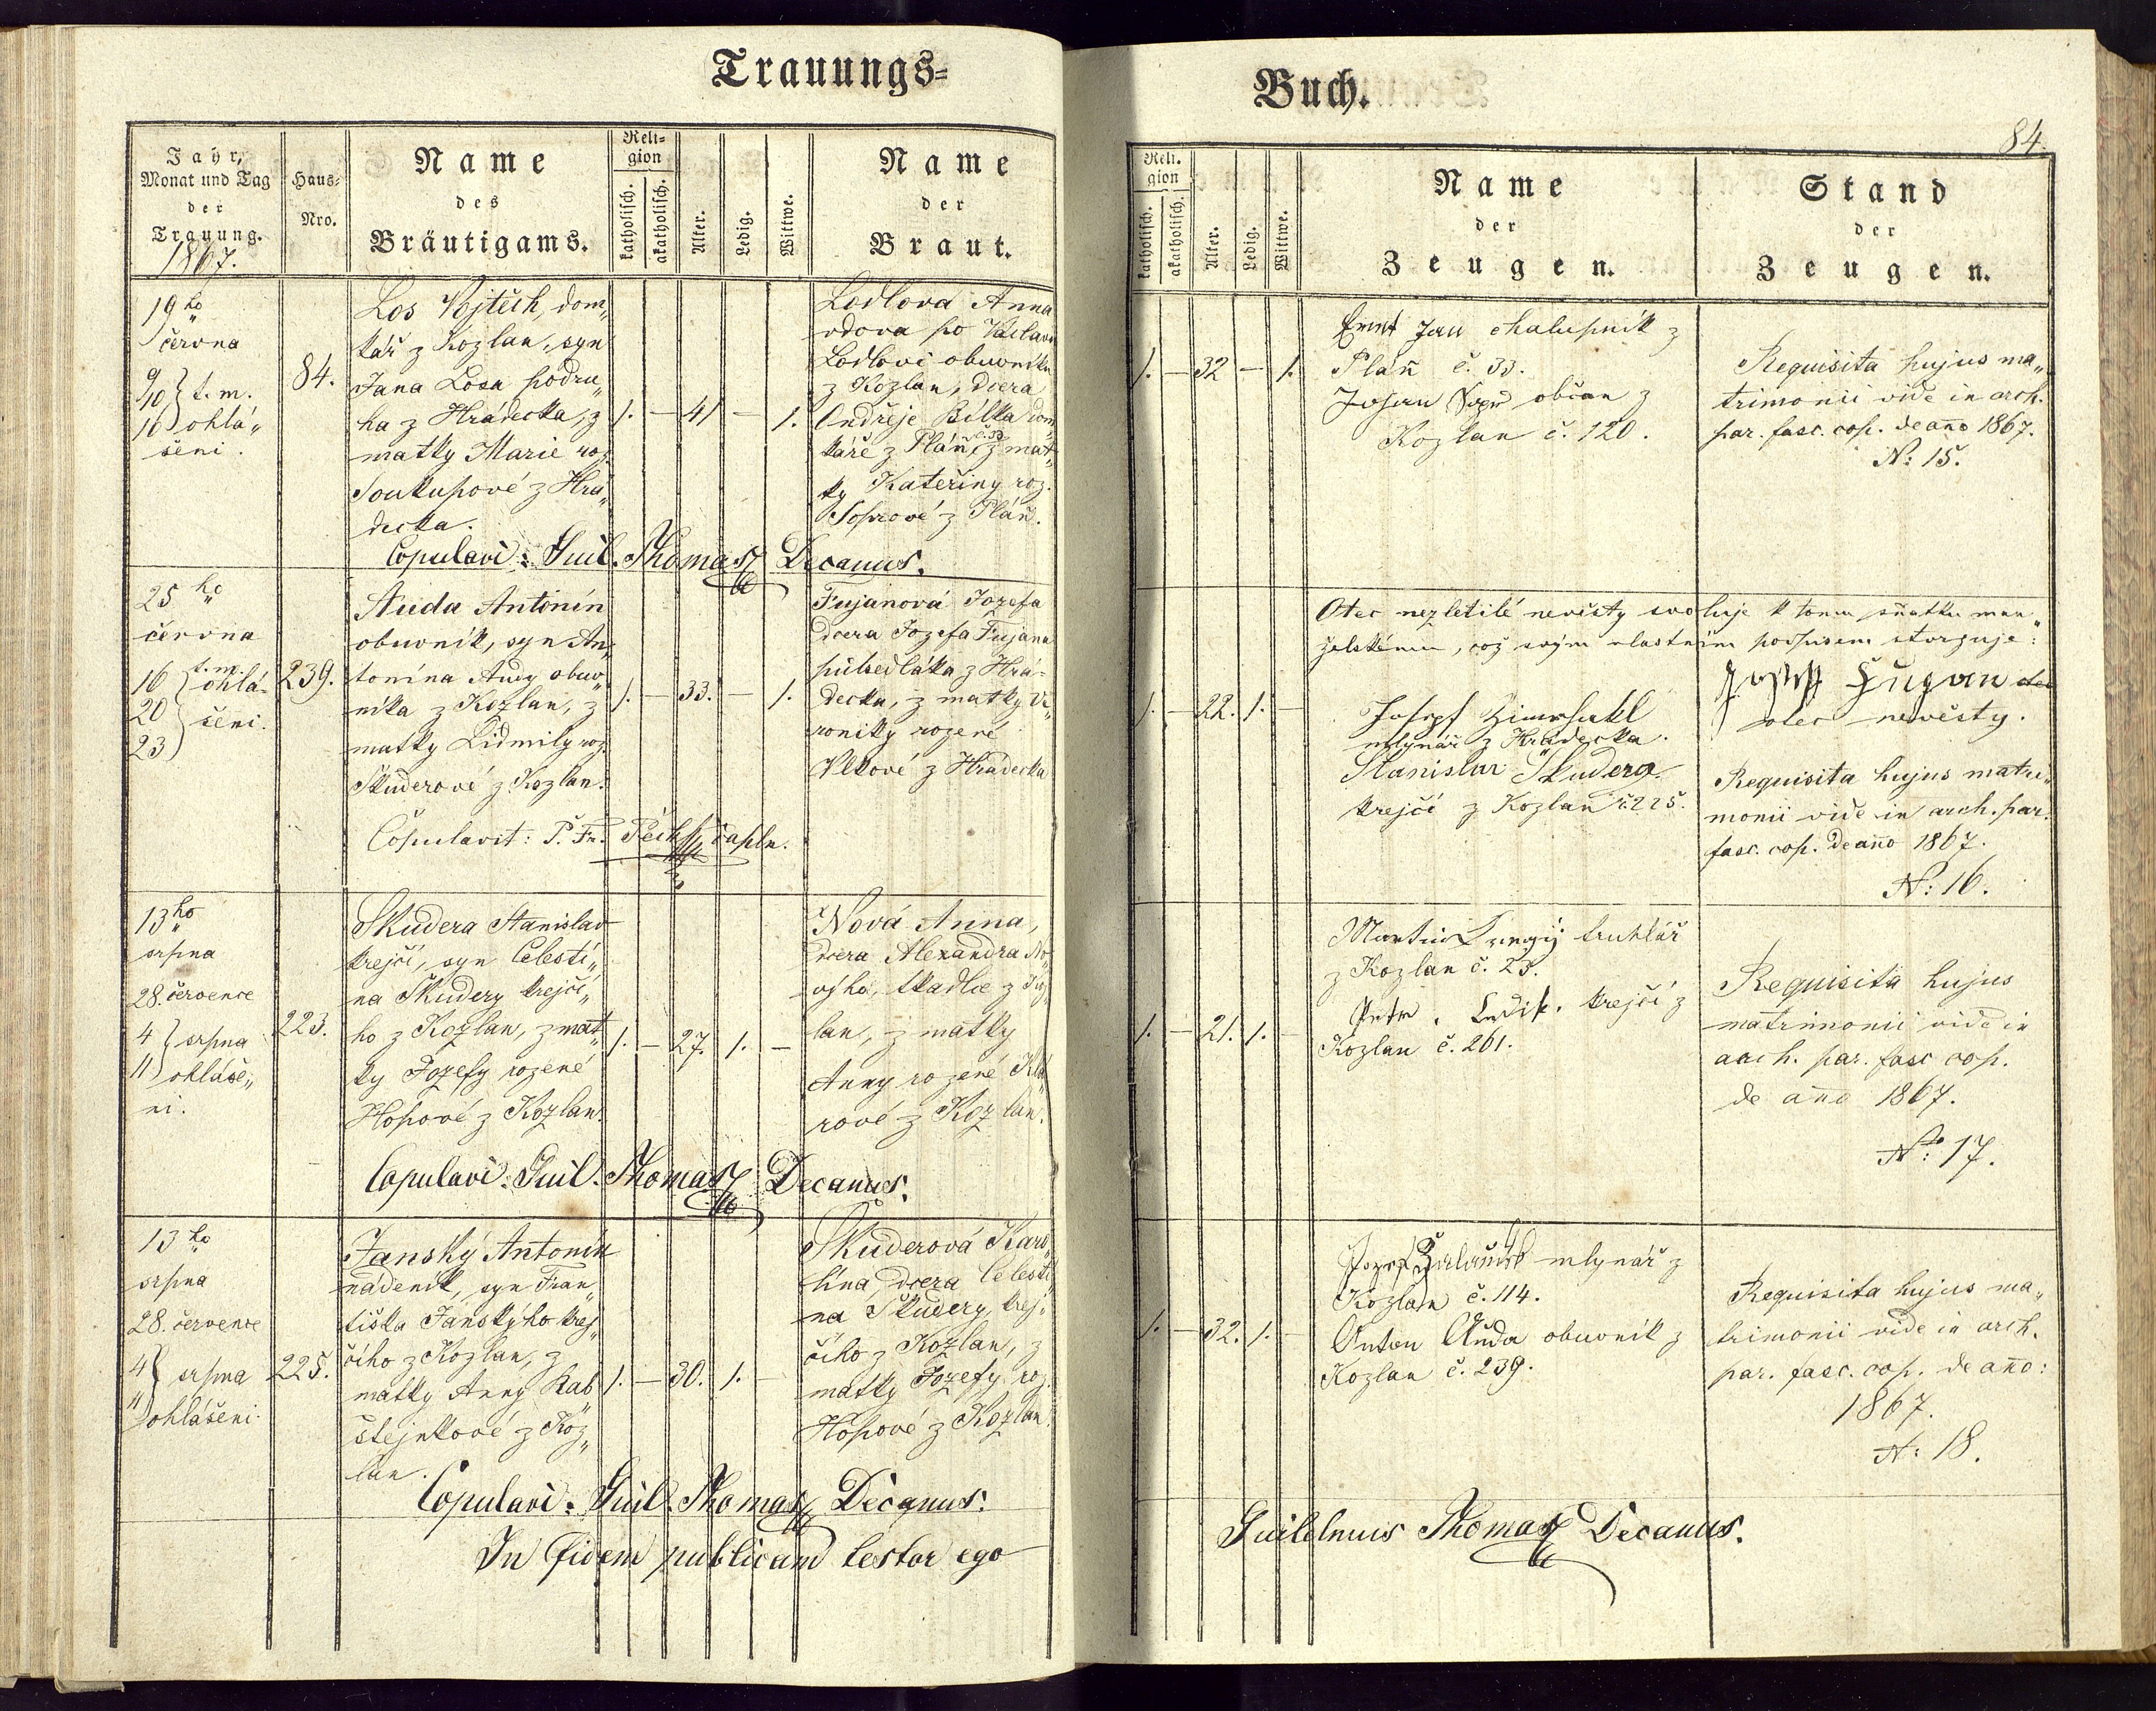 Trauungs=
Buch.
84.
Jahr,
Monat und Tag
der
Trauung.
1867.
Haus=
Nro.
Name
des
Bräutigams.
Reli=
gion
katholisch.
akatholisch.
Alter.
Ledig.
Wittwe.
Name
der
Braut.
Reli.
gion
katholisch.
akatholisch.
Alter.
Ledig.
Wittwe.
Name
der
Zeugen.
Stand
der
Zeugen.
19ho
června
9/10 } t. m.
16 ohlá„
šení.
84.
Los Vojtěch, dom„
kář z Kozlan, syn
Jana Losa podru„
ha z Hrádecka, z
matky Marie roz.
Soukupové z Hrá„
decka.
1. — 41 — 1.
Lodlova Anna
vdova po Václavu
Lodlovi obuvníku
z Kozlan, dcera
Ondřeje Bílka dom„
káře z Pláň, z mat„
ky Kateřiny roz.
z Pláň.
Copulavi: Guil. Thomasz Decanus.
1. — 32 — 1.
Ernst Jan chalupník z
Pláň č. 33.
občan z
Kozlan č. 120.
Requisita hujus ma„
trimonii vide in arch.
par. fasc. cop. de año 1867.
N: 15.
25ho
června
16 t. m.
20 ohlá-
23 šení.
239.
Auda Antonín
obuvník, syn An„
tonína Audy obuv„
níka z Kozlan, z
matky Lidmily roz.
Škuderové z Kozlan.
1. — 33. — 1.
Fujanová Jozefa
dcera Jozefa Fujana
půlsedláka z Hrá-
decka, z matky Ve„
roniky rozené
Vlkové z Hradecka
Copulavit: P. Fr. kapln.
1. — 22. 1. —
Otec nezletilé nevěsty svoluje k tomu sňatku man„
želskému, což svým vlastním podpisem stvrzuje:
otec
otec nevěsty.
mlynář z Hradecka.
Stanislav Škudera
krejčí z Kozlan č. 225.
Requisita hujus matri„
monii vide in arch. par.
fasc. cop. de año 1867.
N: 16.
13ho
srpna
28. července
4 } srpna
11 ohláše„
ní.
223.
Škudera Stanislav
krejčí, syn Celestí„
na Škudery krejčí„
ho z Kozlan, z mat„
ky Jozefy rozené
Hopové z Kozlan.
1. — 27. 1. —
Nová Anna,
dcera Alexandra No„
výho, tkadlce z Koz„
lan, z matky
Anny rozené
rové z Kozlan.
Copulavi: Guil. Thomasz Decanus.
1. — 21. 1. —
Martin truhlář
z Kozlan č. 23.
krejčí z
Kozlan č. 261.
Requisita hujus
matrimonii vide in
arch. par. fasc cop.
de año 1867.
No: 17.
13ho
srpna
28. července
4 } srpna
11 ohlášení.
225.
Janský Antonín
nadeník, syn Fran„
tiška Janskýho krej„
čího z Kozlan, z
matky Anny Rab„
štejnkové z Koz„
lan.
1. — 30. 1. —
Škuderová Karo„
lína, dcera Celestí„
na Škudery, krej„
čího z Kozlan, z
matky Jozefy roz.
Hopové z Kozlan.
Copulavi: Guil. Thomasz Decanus.
1. — 32. 1. —
mlynář z
Kozlan č. 114.
Anton Auda obuvník z
Kozlan č. 239.
Requisita hujus ma„
trimonii vide in arch.
par. fasc. cop. de año:
1867.
N: 18.
In fidem publicam testor ego
Guilelmus Thomasz Decanus.